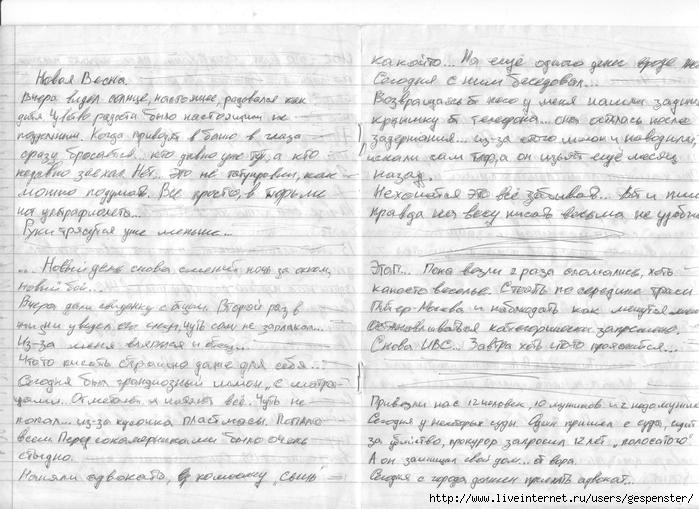 Новая Весна
Вчера видел солнце, настоящее, радовался как
дитя. Чувство радости было настоящим не
поддельным. Когда приводят в баню в глаза
сразу бросается... кто давно уже тут, а кто
недавно заехал. Нет... Это не татуировки, как
можно подумать. Все просто, в тюрьме
нет ультрафиолета...
Руки трясутся уже меньше...
... Новый день снова сменяет ночь за окном,
новый бой...
Вчера дали свиданку с отцом. Второй раз в
жизни увидел его слезы, чуть сам не заплакал...
Из-за меня
Что то писать страшно даже для себя...
Сегодня был грандиозный шмон, с матра-
цами. Отметают и ломают всё. Чуть не
попал... из-за кусочка пластмассы. Попало
всем. Перед сокамерниками было очень
стыдно.
Наняли адвоката, в комнату
какой то... На ещё одного денег вроде
Сегодня с ним беседовал...
Возвращаясь у меня нашли заднюю
крышку телефона... она осталась после
задержания... из-за этого шмон и наводили,
искали сам тар, а он изъят ещё месяц
назад.
Не хочется это всё забывать... вот и пишу
правда на весу писать весьма не удобно
ЭТАП... Пока везли 2 раза сломались, хоть
какое то веселье. Стоять по середине трассы
Питер-Москва и наблюдать как мигутся
останавливаться категорически запрещено.
Снова ИВС... Завтра хоть что то прояснится...
Привезли нас 12 человек, 10 мужиков и 2 недомужика
Сегодня у некоторых суды. Один пришел с суда, сидит
за убийство, прокурор запросил 12 лет „полосатого“
А он защищал свой дом... от вора.
Сегодня с города должен приехать адвокат...
http://www.liveinternet.ru/users/gespenster/